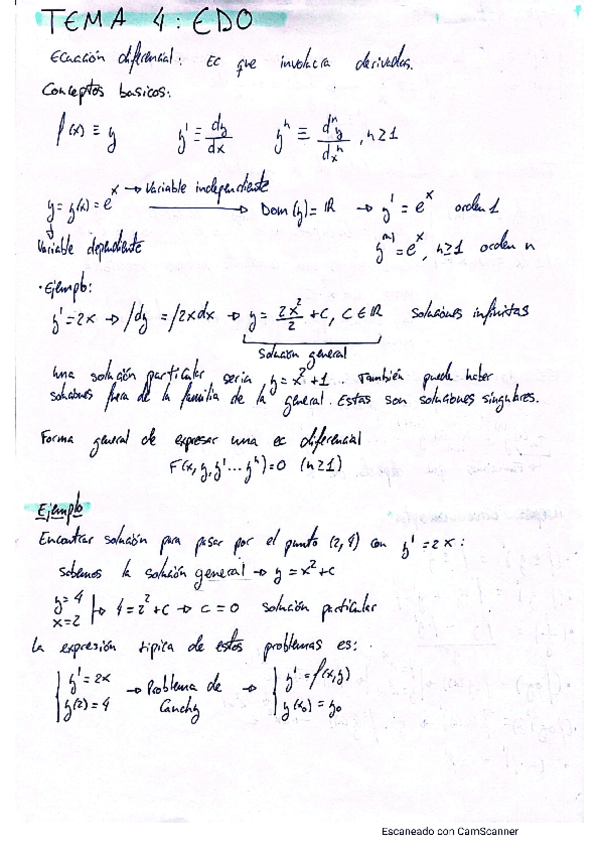 TEMA 4: EDO
Ecuación diferencial: Ec que involucra derivadas.
Conceptos basicos:
f(x) ≡ y   y' ≡ dy/dx   yⁿ ≡ dⁿy/dxⁿ , n≥1
y = y(x) = eˣ → Variable independiente → Dom(y) = ℝ → y' = eˣ orden 1
Variable dependiente   y⁽ⁿ⁾ = eˣ, n≥1 orden n
· Ejemplo:
y' = 2x → ∫dy = ∫2xdx → y = 2x²/2 + C, C ∈ ℝ   soluciones infinitas
solución general
una solución particular seria y = x² + 1. También puede haber
soluciones fuera de la familia de la general. Estas son soluciones singulares.
Forma general de expresar una ec diferencial
F(x, y, y' ... yⁿ) = 0 (n≥1)
Ejemplo
Encontrar solución para pasar por el punto (2,4) con y' = 2x:
sabemos la solución general → y = x² + c
y = 4
x = 2 → 4 = 2² + c → c = 0 solución particular
la expresión tipica de estos problemas es:
y' = 2x → Problema de → y' = f(x,y)
y(2) = 4   Cauchy   y(x₀) = y₀
Escaneado con CamScanner